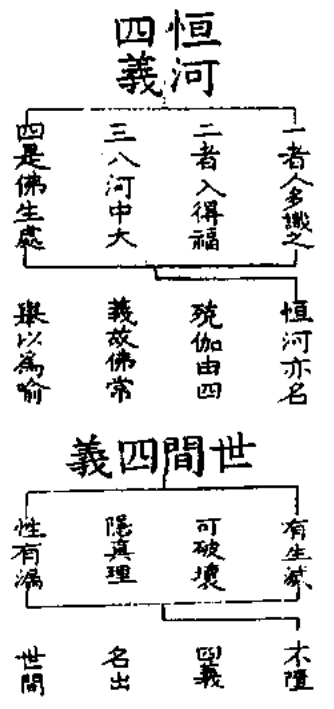 恒河
四義
一者人多識之
二者入得福
三八河中大
四是佛生處
恒河亦名
殑伽由四
義故佛常
舉以為喻
世間四義
有生滅
可破壞
隱真理
性有漏
不墮
四義
名出
世間